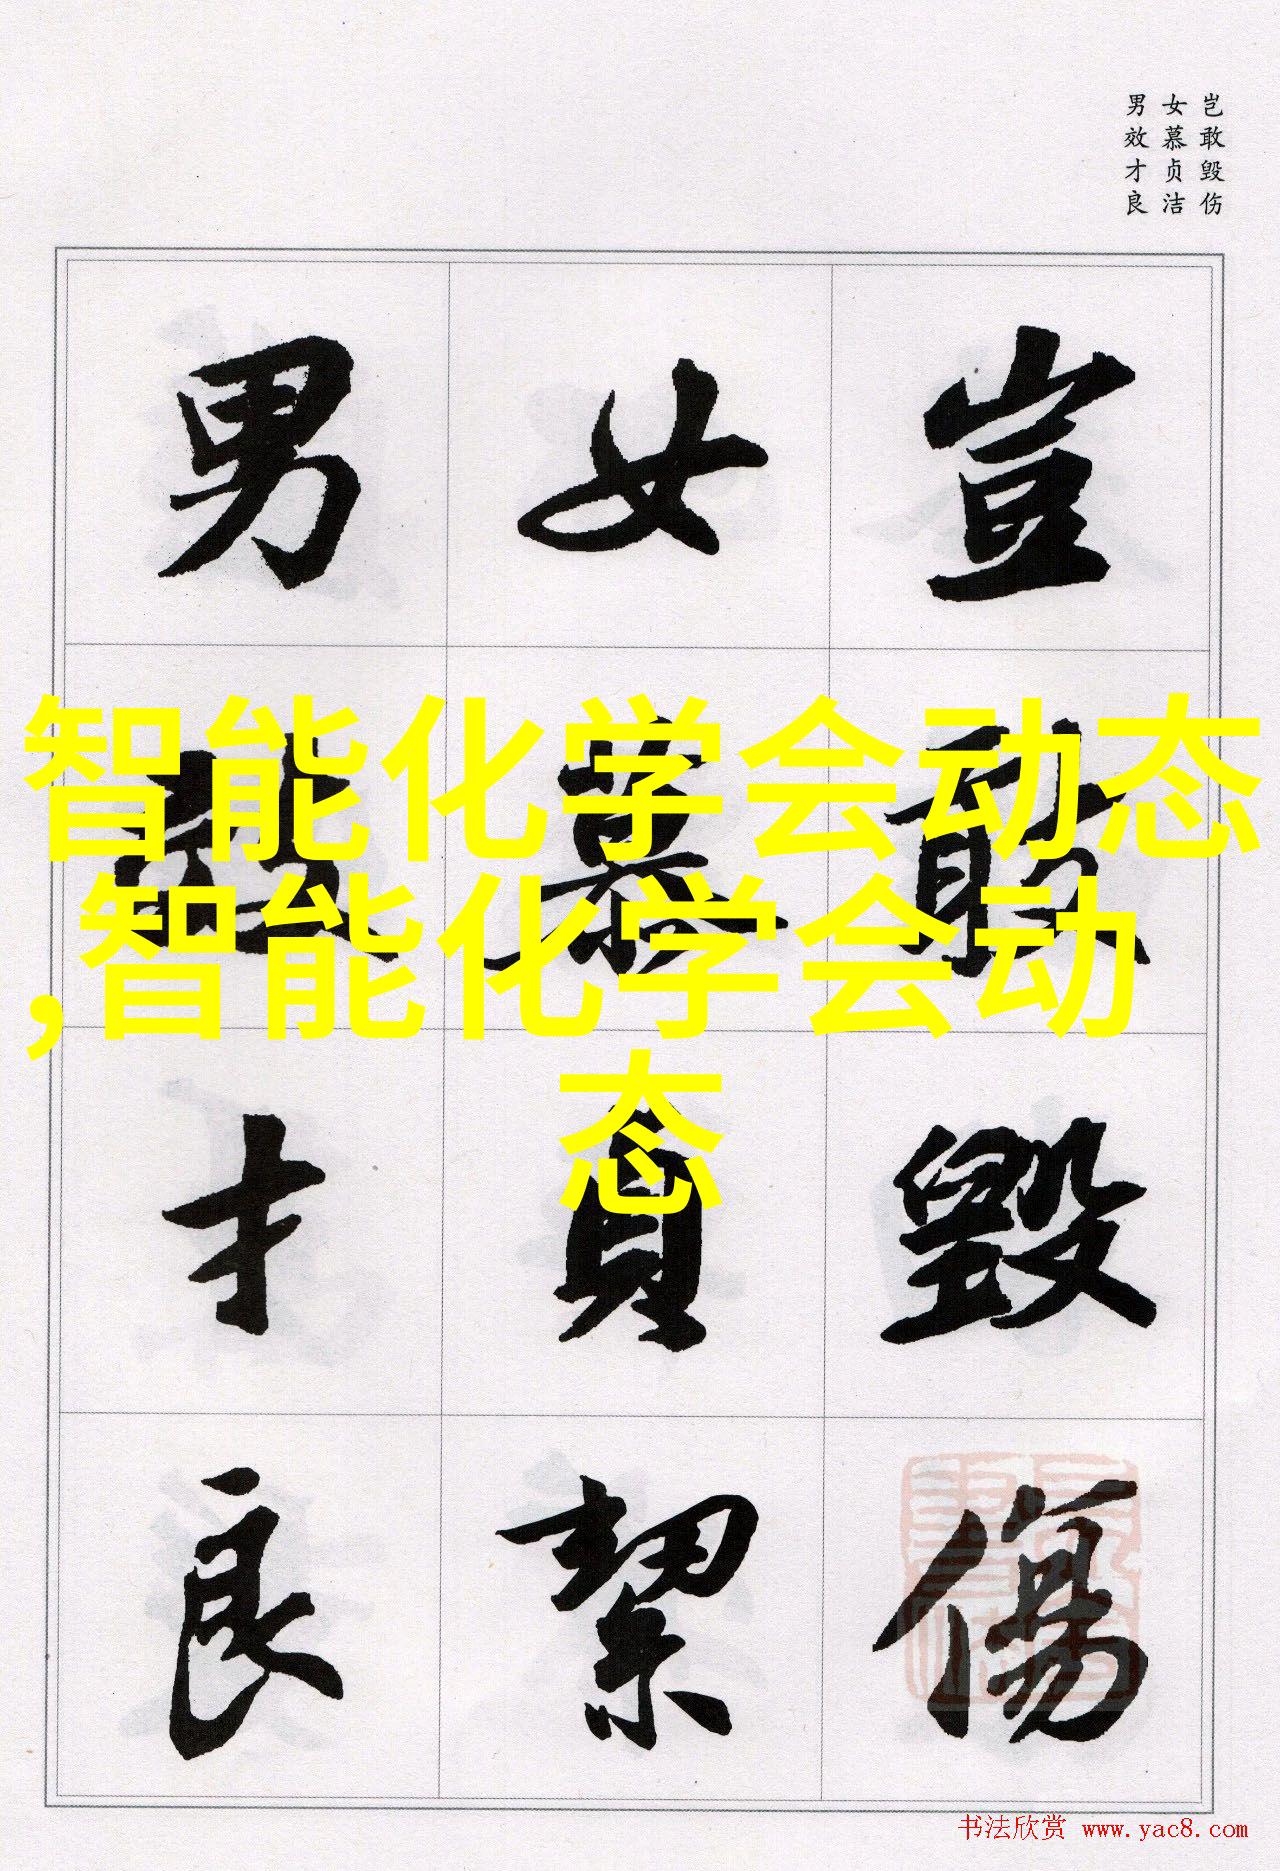 岂敢毁伤
女慕贞洁
男效才良
豈敢毀傷
女慕貞絜
男效才良
智能化学会动态
,智能化学会动
态
书法欣赏 www.yac8.com